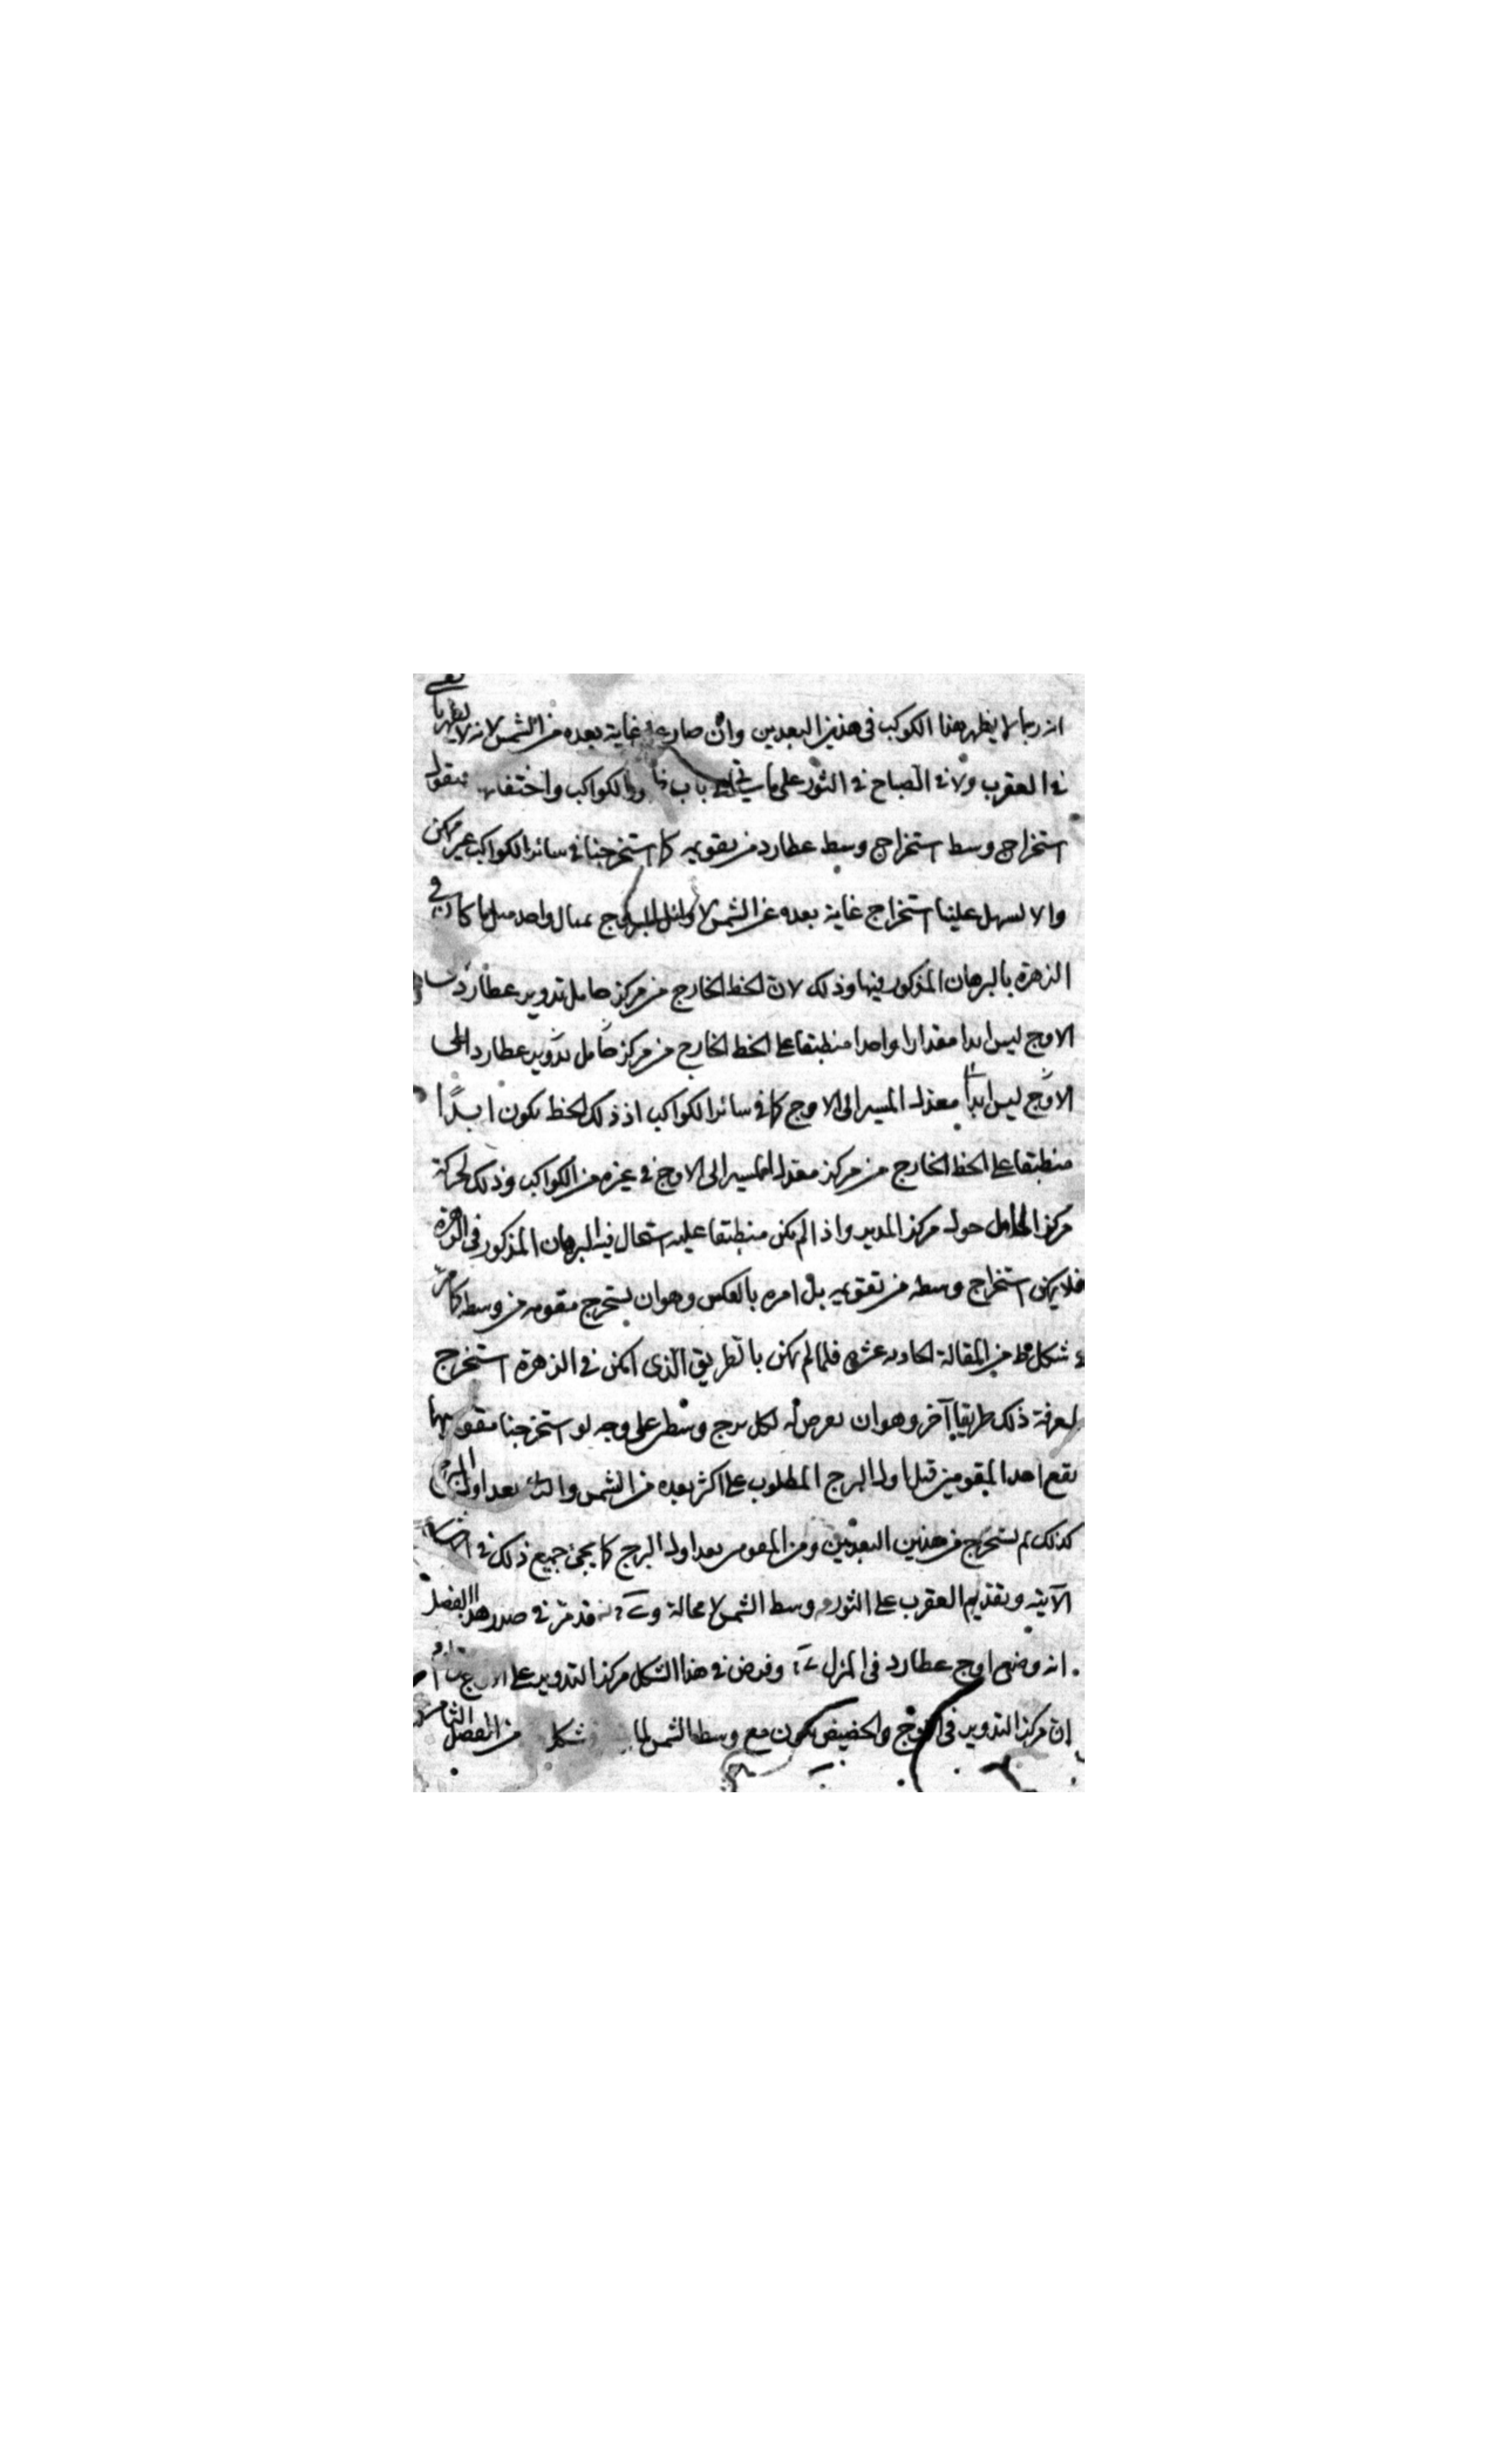 انه ربما لا يظهر هذا الكوكب في هذين البعدين وان صار على غاية بعده من الشمس لانه لا يظهر
في العقرب ولا في الصباح في الثور على ما سيأتي في باب الكواكب واختفائها فنقول
استخراج وسط استخراج وسط عطارد من تقويمه كما استخرجنا في سائر الكواكب غير ممكن
والا لسهل علينا استخراج غاية بعده عن الشمس لاوائل البروج بمثال واحد كما كان في
الزهرة بالبرهان المذكور فيها وذلك لان الخط الخارج من مركز حامل تدوير عطارد
الاوج ليس ابدا مقدارا واحدا منطبقا على الخط الخارج من مركز حامل تدوير عطارد الى
الاوج ليس ابدا معدل المسير الى الاوج كما في سائر الكواكب اذ ذلك الخط يكون ابدًا
منطبقا على الخط الخارج من مركز معدل المسير الى الاوج في غيره من الكواكب وذلك لحركة
مركز الحامل حول مركز المدير واذا لم يكن منطبقا عليه استحال فيه البرهان المذكور في الزهرة
فلا يمكن استخراج وسطه من تقويمه بل امره بالعكس وهو ان يستخرج مقومه من وسطه كما مر
شكل من المقالة الحاديه عشر فلما لم يكن بالطريق الذى امكن في الزهرة استخرج
لمعرفة ذلك طريقا آخر وهو ان يعرض له لكل برج وسطين على وجه لو استخرجنا مقوميهما
يقع احد المقومين قبل اول البرج المطلوب على اكثر بعده من الشمس والثاني بعد اول البرج
كذلك ثم يستخرج من هذين البعدين ومن المقومين بعد اول البرج كما يجئ جميع ذلك في
الآتية وتقديم العقرب على الثور وسط الشمس لا محالة قد مر في صدر هذا الفصل
انه وضع اوج عطارد في المنزل وفرض في هذا الشكل مركز التدوير على الاوج
ان مركز التدوير في الاوج والحضيض يكون مع وسط الشمس لما شكل من الفصل الثامن